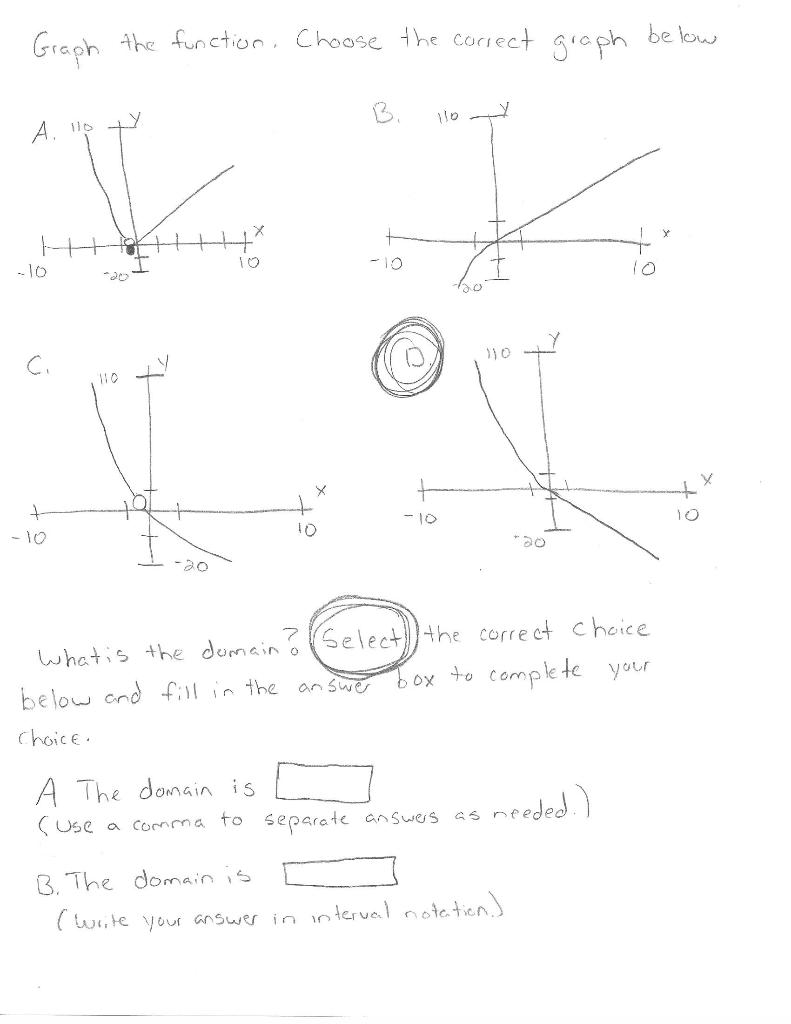 Graph the function. Choose the correct graph below
A. 110 y
x
-10 -20 10
B. 110 y
x
-10 -20 10
C. 110 y
x
-10 10
-20
D. 110 y
x
-10 10
-20
What is the domain? Select the correct choice
below and fill in the answer box to complete your
choice.
A The domain is
(Use a comma to separate answers as needed.)
B. The domain is
(Write your answer in interval notation.)